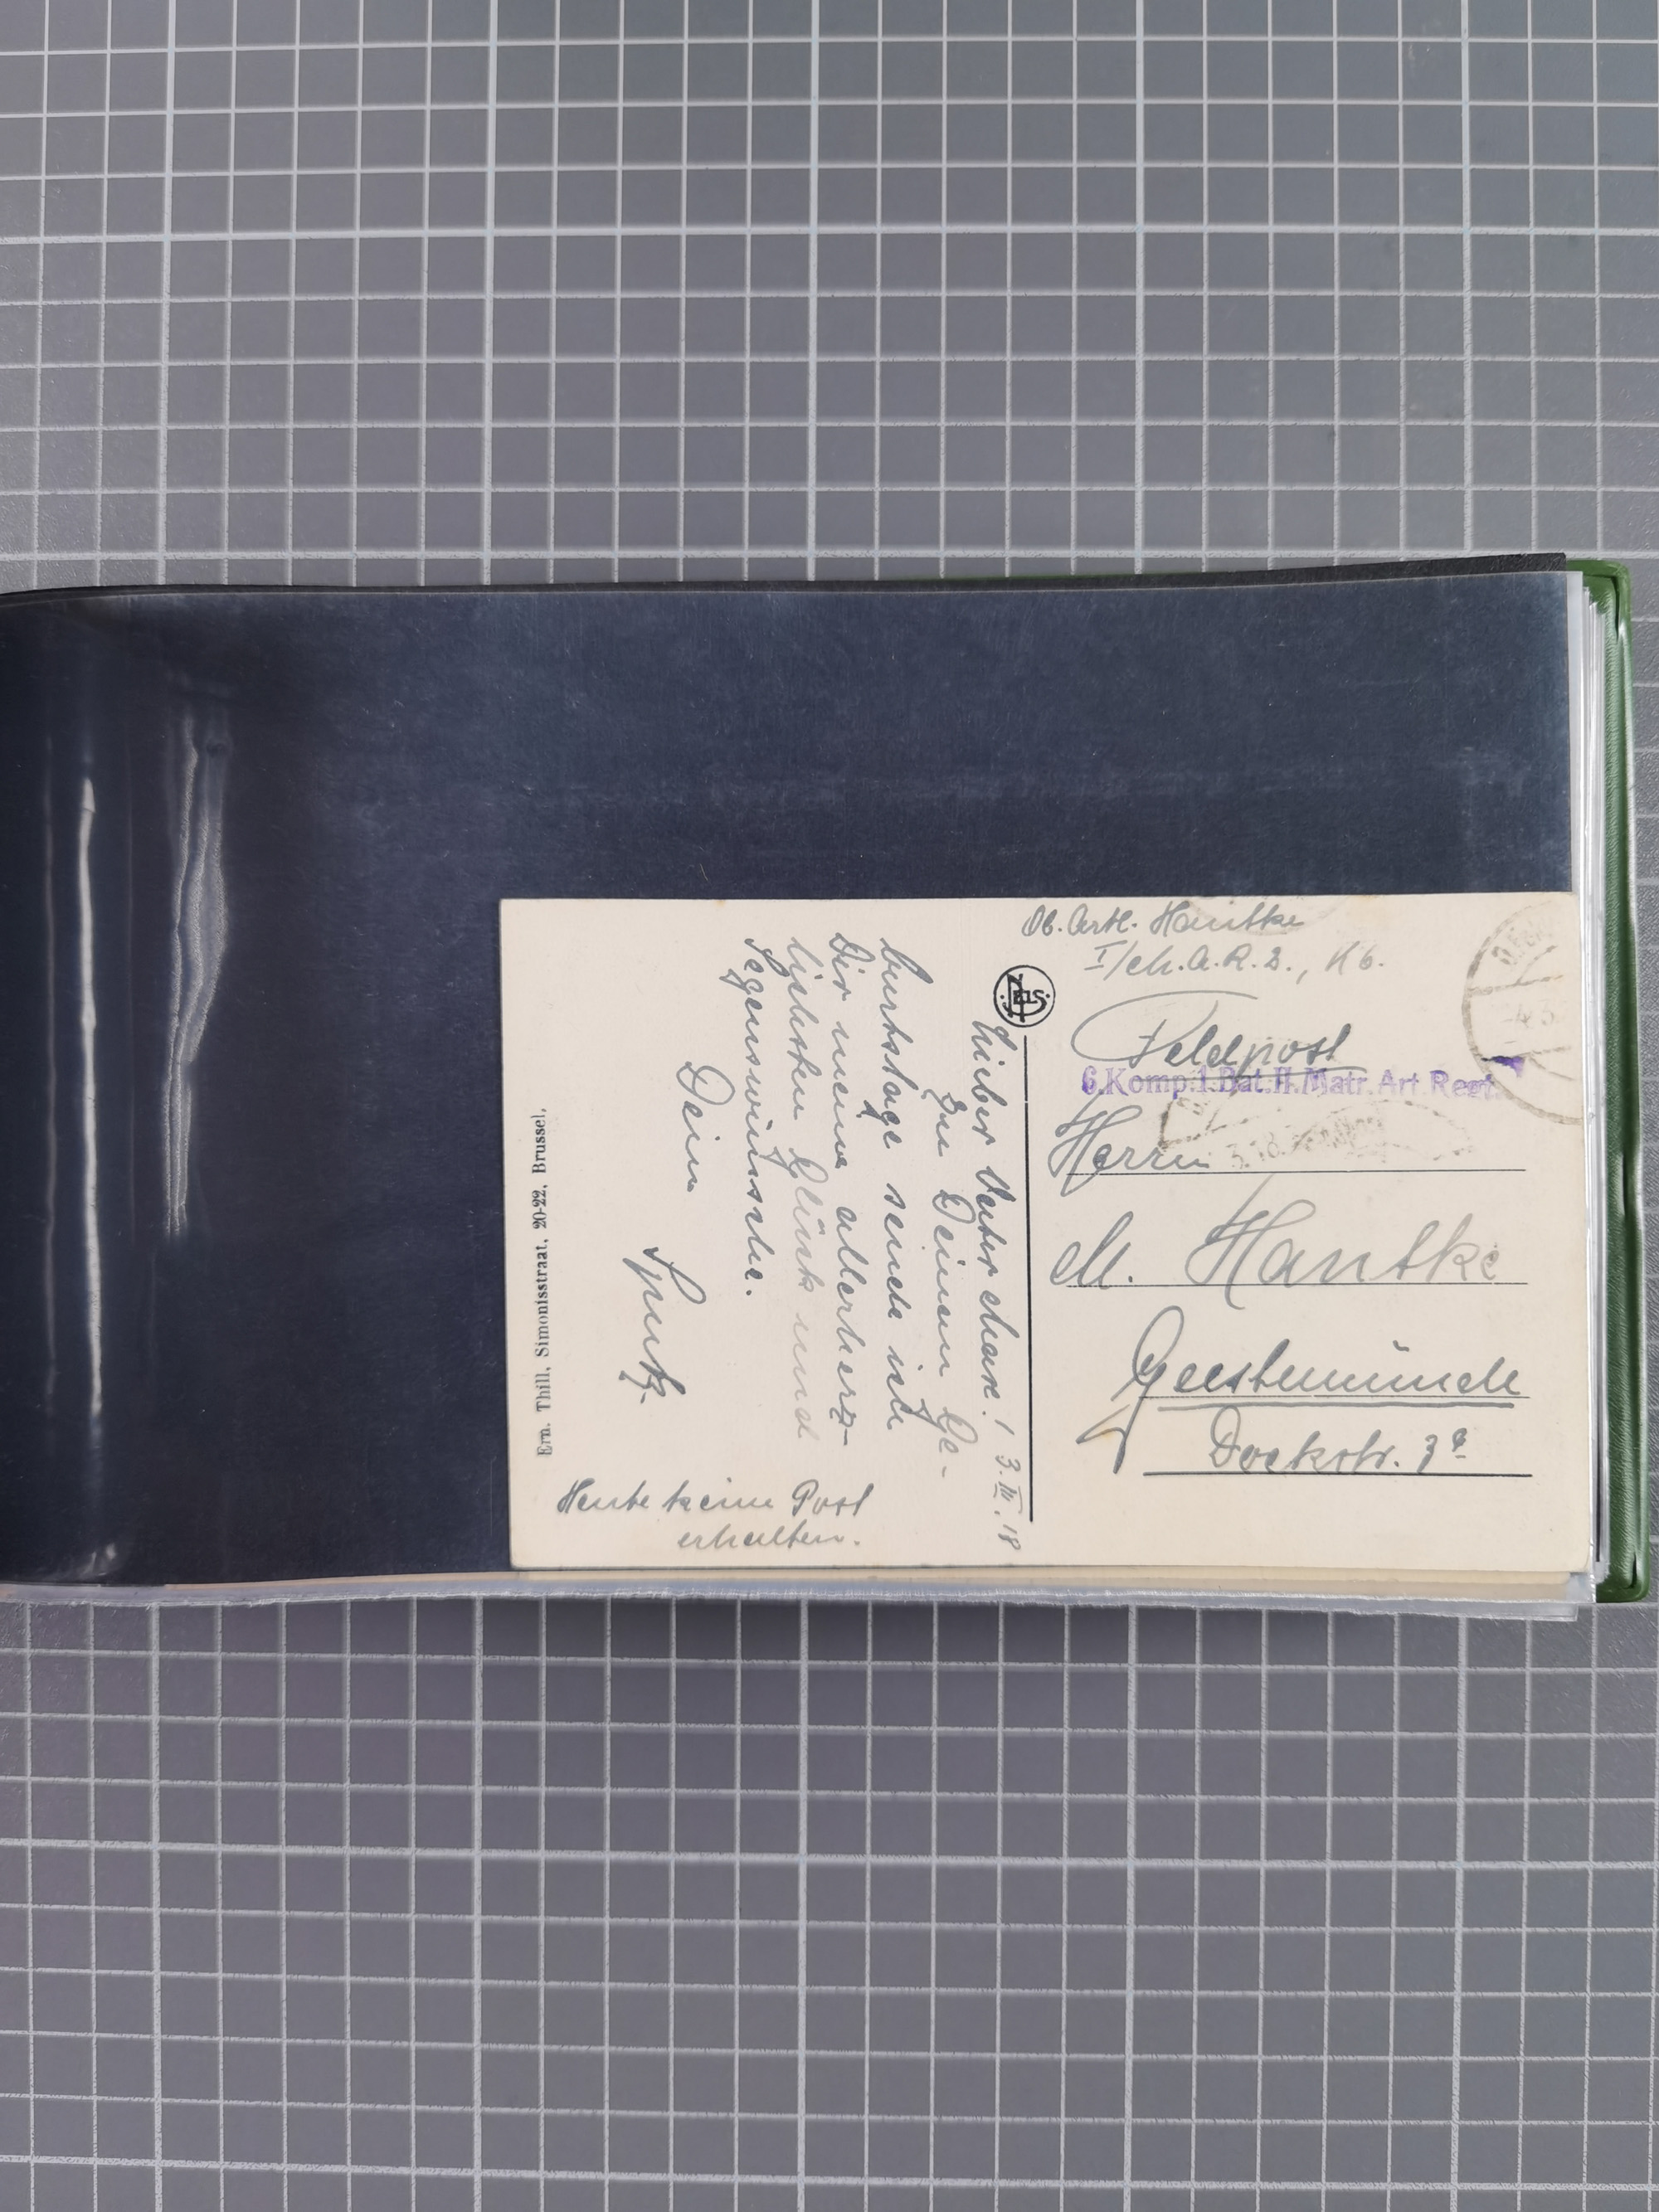 Ob. Artl. Hantke
I/M.A.R.2., K6.
Feldpost
6.Komp.I.Bat.II.Matr.Art Regt.
Herrn
M. Hantke
Geestemünde
Dockstr. 3
NELS
3.III.18
Lieber Vater Max!
Zu Deinem Ge-
burtstage sende ich
Dir meine allerherz-
lichsten Glück und
Segenswünsche.
Dein
Heute keine Post
erhalten.
Ern. Thill, Simonisstraat, 20-22, Brussel.